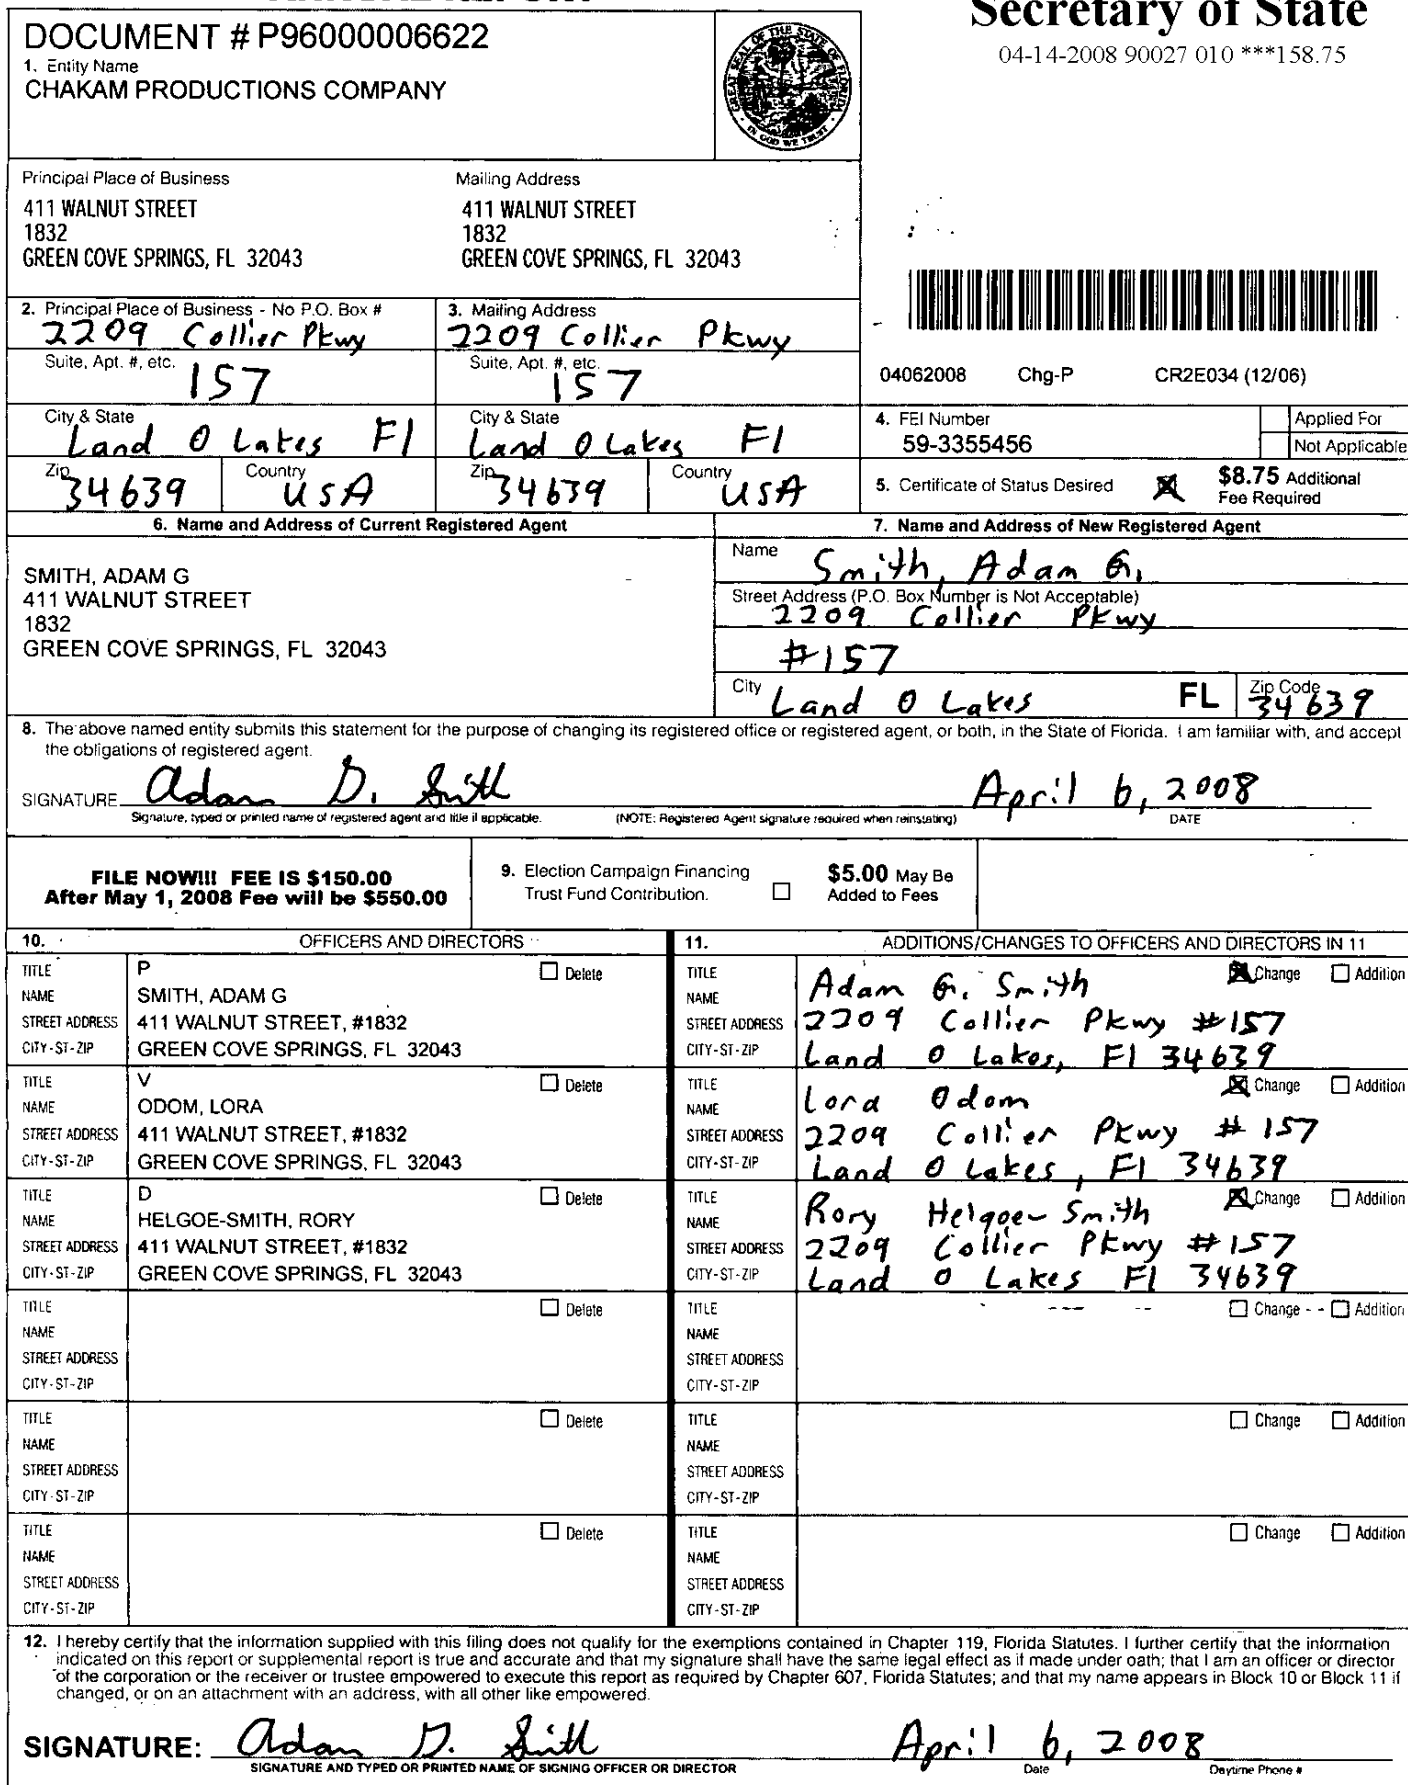 Secretary of State
04-14-2008 90027 010 ***158.75
DOCUMENT # P96000006622
1. Entity Name
CHAKAM PRODUCTIONS COMPANY
GREAT SEAL OF THE STATE OF FLORIDA
IN GOD WE TRUST
Principal Place of Business
411 WALNUT STREET
1832
GREEN COVE SPRINGS, FL 32043
Mailing Address
411 WALNUT STREET
1832
GREEN COVE SPRINGS, FL 32043
2. Principal Place of Business - No P.O. Box #
2209 Collier Pkwy
Suite, Apt. #, etc.
157
City & State
Land O Lakes Fl
Zip
34639
Country
USA
3. Mailing Address
2209 Collier Pkwy
Suite, Apt. #, etc.
157
City & State
Land O Lakes Fl
Zip
34639
Country
USA
04062008 Chg-P CR2E034 (12/06)
4. FEI Number
59-3355456
Applied For
Not Applicable
5. Certificate of Status Desired
$8.75 Additional
Fee Required
6. Name and Address of Current Registered Agent
SMITH, ADAM G
411 WALNUT STREET
1832
GREEN COVE SPRINGS, FL 32043
7. Name and Address of New Registered Agent
Name
Smith, Adam G.
Street Address (P.O. Box Number is Not Acceptable)
2209 Collier Pkwy
#157
City
Land O Lakes
FL
Zip Code
34639
8. The above named entity submits this statement for the purpose of changing its registered office or registered agent, or both, in the State of Florida. I am familiar with, and accept
the obligations of registered agent.
SIGNATURE Adam G. Smith April 6, 2008
Signature, typed or printed name of registered agent and title if applicable. (NOTE: Registered Agent signature required when reinstating) DATE
FILE NOW!!! FEE IS $150.00
After May 1, 2008 Fee will be $550.00
9. Election Campaign Financing
Trust Fund Contribution.
$5.00 May Be
Added to Fees
10. OFFICERS AND DIRECTORS
TITLE P Delete
NAME SMITH, ADAM G
STREET ADDRESS 411 WALNUT STREET, #1832
CITY-ST-ZIP GREEN COVE SPRINGS, FL 32043
TITLE V Delete
NAME ODOM, LORA
STREET ADDRESS 411 WALNUT STREET, #1832
CITY-ST-ZIP GREEN COVE SPRINGS, FL 32043
TITLE D Delete
NAME HELGOE-SMITH, RORY
STREET ADDRESS 411 WALNUT STREET, #1832
CITY-ST-ZIP GREEN COVE SPRINGS, FL 32043
TITLE Delete
NAME
STREET ADDRESS
CITY-ST-ZIP
TITLE Delete
NAME
STREET ADDRESS
CITY-ST-ZIP
TITLE Delete
NAME
STREET ADDRESS
CITY-ST-ZIP
11. ADDITIONS/CHANGES TO OFFICERS AND DIRECTORS IN 11
TITLE Change Addition
NAME Adam G. Smith
STREET ADDRESS 2209 Collier Pkwy #157
CITY-ST-ZIP Land O Lakes, Fl 34639
TITLE Change Addition
NAME Lora Odom
STREET ADDRESS 2209 Collier Pkwy # 157
CITY-ST-ZIP Land O Lakes, Fl 34639
TITLE Change Addition
NAME Rory Helgoe-Smith
STREET ADDRESS 2209 Collier Pkwy #157
CITY-ST-ZIP Land O Lakes Fl 34639
TITLE Change Addition
NAME
STREET ADDRESS
CITY-ST-ZIP
TITLE Change Addition
NAME
STREET ADDRESS
CITY-ST-ZIP
TITLE Change Addition
NAME
STREET ADDRESS
CITY-ST-ZIP
12. I hereby certify that the information supplied with this filing does not qualify for the exemptions contained in Chapter 119, Florida Statutes. I further certify that the information
indicated on this report or supplemental report is true and accurate and that my signature shall have the same legal effect as if made under oath; that I am an officer or director
of the corporation or the receiver or trustee empowered to execute this report as required by Chapter 607, Florida Statutes; and that my name appears in Block 10 or Block 11 if
changed, or on an attachment with an address, with all other like empowered.
SIGNATURE: Adam G. Smith April 6, 2008
SIGNATURE AND TYPED OR PRINTED NAME OF SIGNING OFFICER OR DIRECTOR Date Daytime Phone #